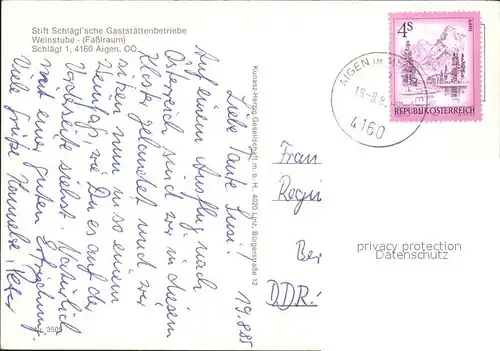 Stift Schlägl'sche Gaststättenbetriebe
Weinstube - (Faßlraum)
Schlägl 1, 4160 Aigen, OÖ
19.8.85
Liebe Tante Limi!
Auf einem Ausflug nach
Österreich sind wir in diesem
Kloster gelandet und wir
sitzen nun in so einem
Weinfaß, wie Du es auf der
Vorderseite siehst. Natürlich
mit einer guten Erfrischung.
Viele Grüße Hannelore, Peter
Kunasz-Herzig Gesellschaft m. b. H., 4020 Linz, Bürgerstraße 12
4S
REPUBLIK ÖSTERREICH
AIGEN IM
19.-8.8
4160
Frau
Regi
Ber
DDR!
privacy protection
Datenschutz
Nr. 350